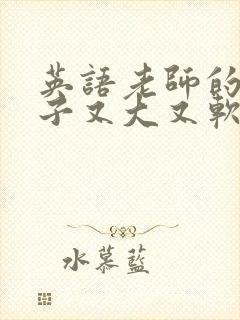 英語老師的
子又大又軟
水慕藍